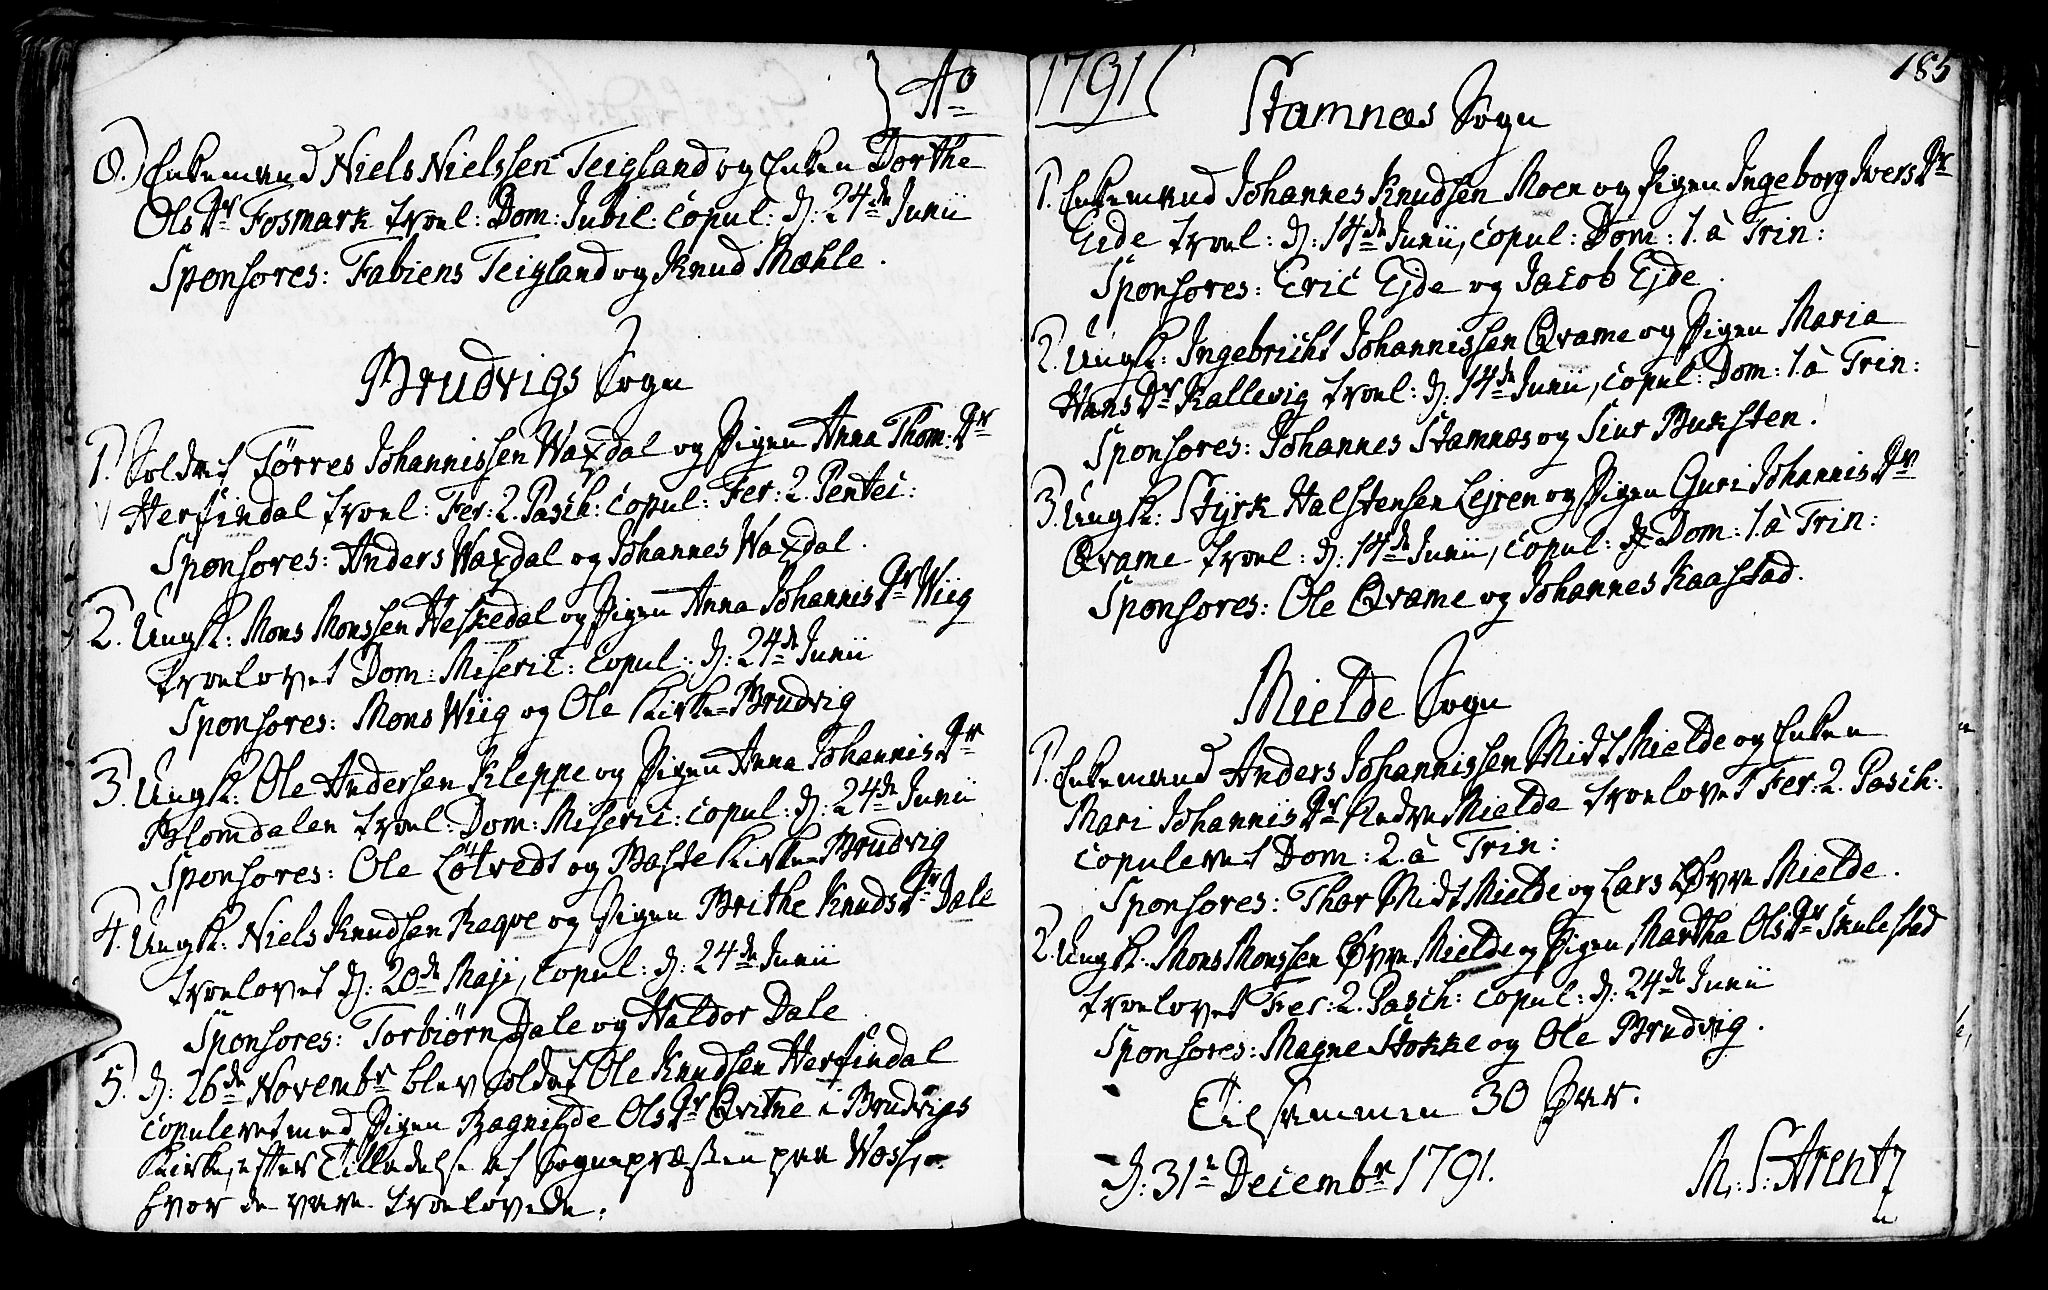 Ao
8.) Enkemand Niels Nielssen Teigland og Enken Dorthe
Ols Dr Fosmark trol: Dom: Jubil: copul: d: 24de Junii
Sponsores: Fabiens Teigland og Knud Mæhle.
Brudvigs Sogn
1. Soldat Tørres Johannissen Waxdal og Pigen Anna Thom: Dr
Herfindal troel: Fer: 2. Pasch: copul: Fer: 2. Pentec:
Sponsores: Anders Waxdal og Johannes Waxdal.
2. Ungk: Mons Monssen Heskedal og Pigen Anna Johannis Dr Wiig
troelovet Dom: Miseric: copul: d: 24de Junii
Sponsores: Mons Wiig og Ole Kirke-Brudvig
3. Ungk: Ole Andersen Kleppe og Pigen Anna Johannis Dr
Blomdalen troel: Dom: Miseric: copul: d: 24de Junii
Sponsores: Ole Løtvedt og Baste Kirke-Brudvig
4. Ungk: Niels Knudsen Reqve og Pigen Brithe Knuds Dr Dale
troelovet d: 20de Maji, copul: d: 24de Junii
Sponsores: Torbiørn Dale og Haldor Dale
5. d: 26de Novembr blev soldat Ole Knudsen Herfindal
copuleret med Pigen Ragnilde Ols Dr Qvitne i Brudvigs
Kirke, efter Tilladelse af Sognepræsten paa Woss,
hvor de vare troelovede.
1791
185
Stamnæs Sogn
1. Enkemand Johannes Knudsen Moen og Pigen Ingeborg Ivers Dr
Eide troel: d: 14de Junii, copul: Dom: 1. à Trin:
Sponsores: Eric Ejde og Jacob Ejde.
2. Ungk: Ingebricht Johannissen Qvame og Pigen Maria
Hans Dr Kallevig troel: d: 14de Junii, copul: Dom: 1. à Trin:
Sponsores: Johannes Stamnæs og Siur Buksten.
3. Ungk: Styrk Halstensen Lejren og Pigen Guri Johannis Dr
Qvame troel: d: 14de Junii, copul: Dom: 1. à Trin:
Sponsores: Ole Qvame og Johannes Kaastad.
Mielde Sogn
1. Enkemand Anders Johannissen Midt Mielde og Enken
Mari Johannis Dr Nedre Mielde troelovet Fer: 2. Pasch:
copuleret Dom: 2. à Trin:
Sponsores: Thor Midt Mielde og Lars Øvre Mielde.
2. Ungk: Mons Monssen Øvre Mielde og Pigen Martha Ols Dr Skulestad
troelovet Fer: 2. Pasch: copul: d: 24de Junii
Sponsores: Magne Stokke og Ole Brudvig.
Tilsammen 30 Par.
d: 31te Decembr 1791.
M: S: Arentz